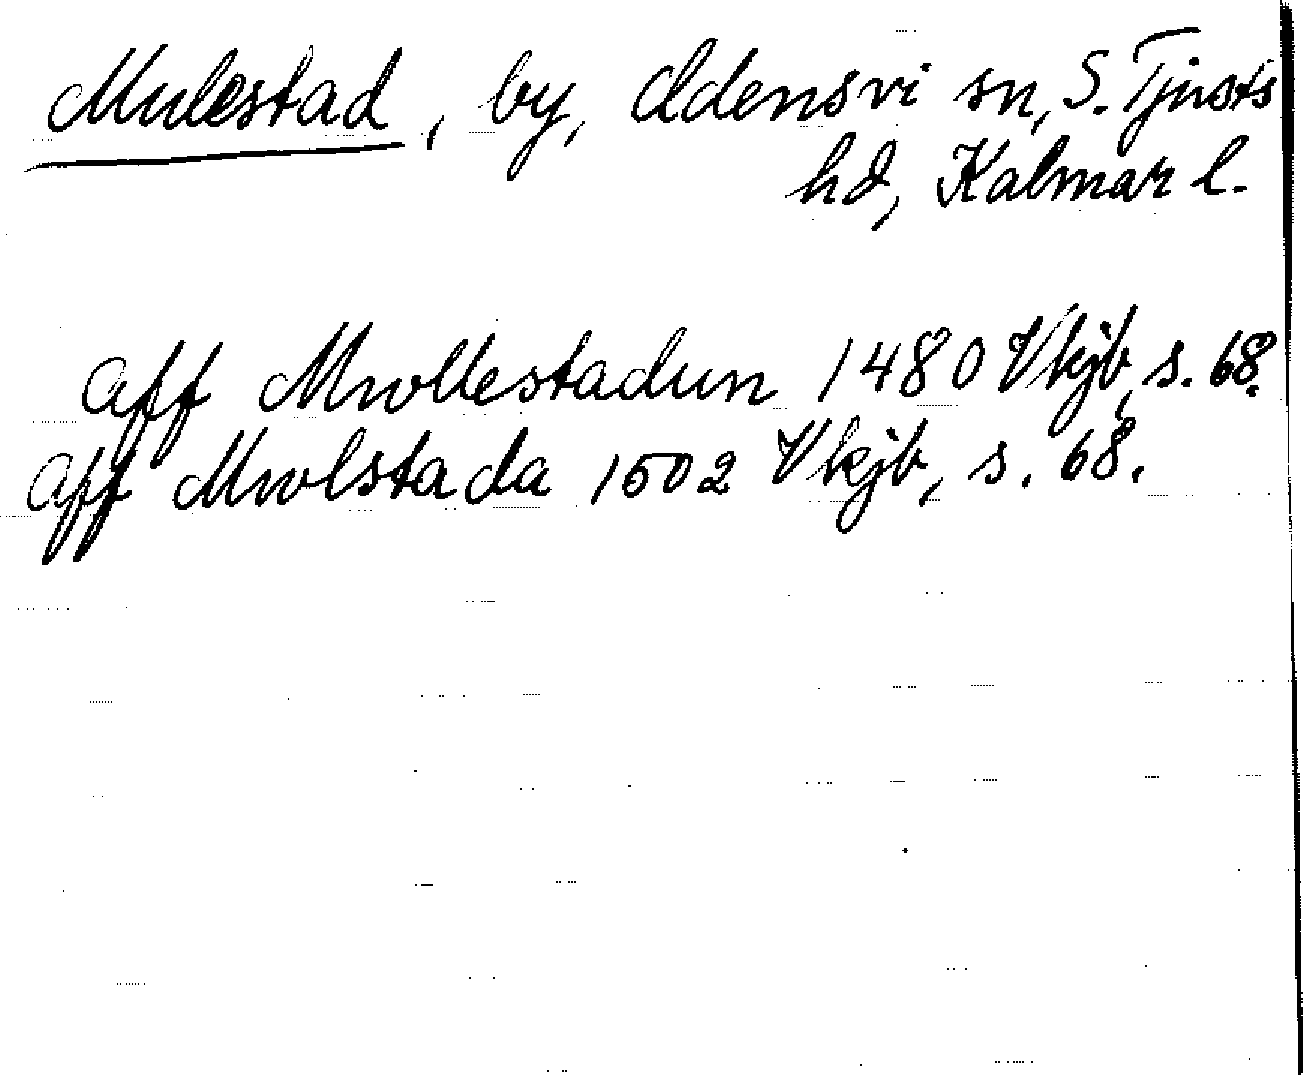 Mulestad, by, Odensvi sn, S. Tjusts
hd, Kalmar l.
aff Mwllestadum 1480 Vkjb, s. 68.
aff Mwlstada 1502 Vkjb, s. 68.